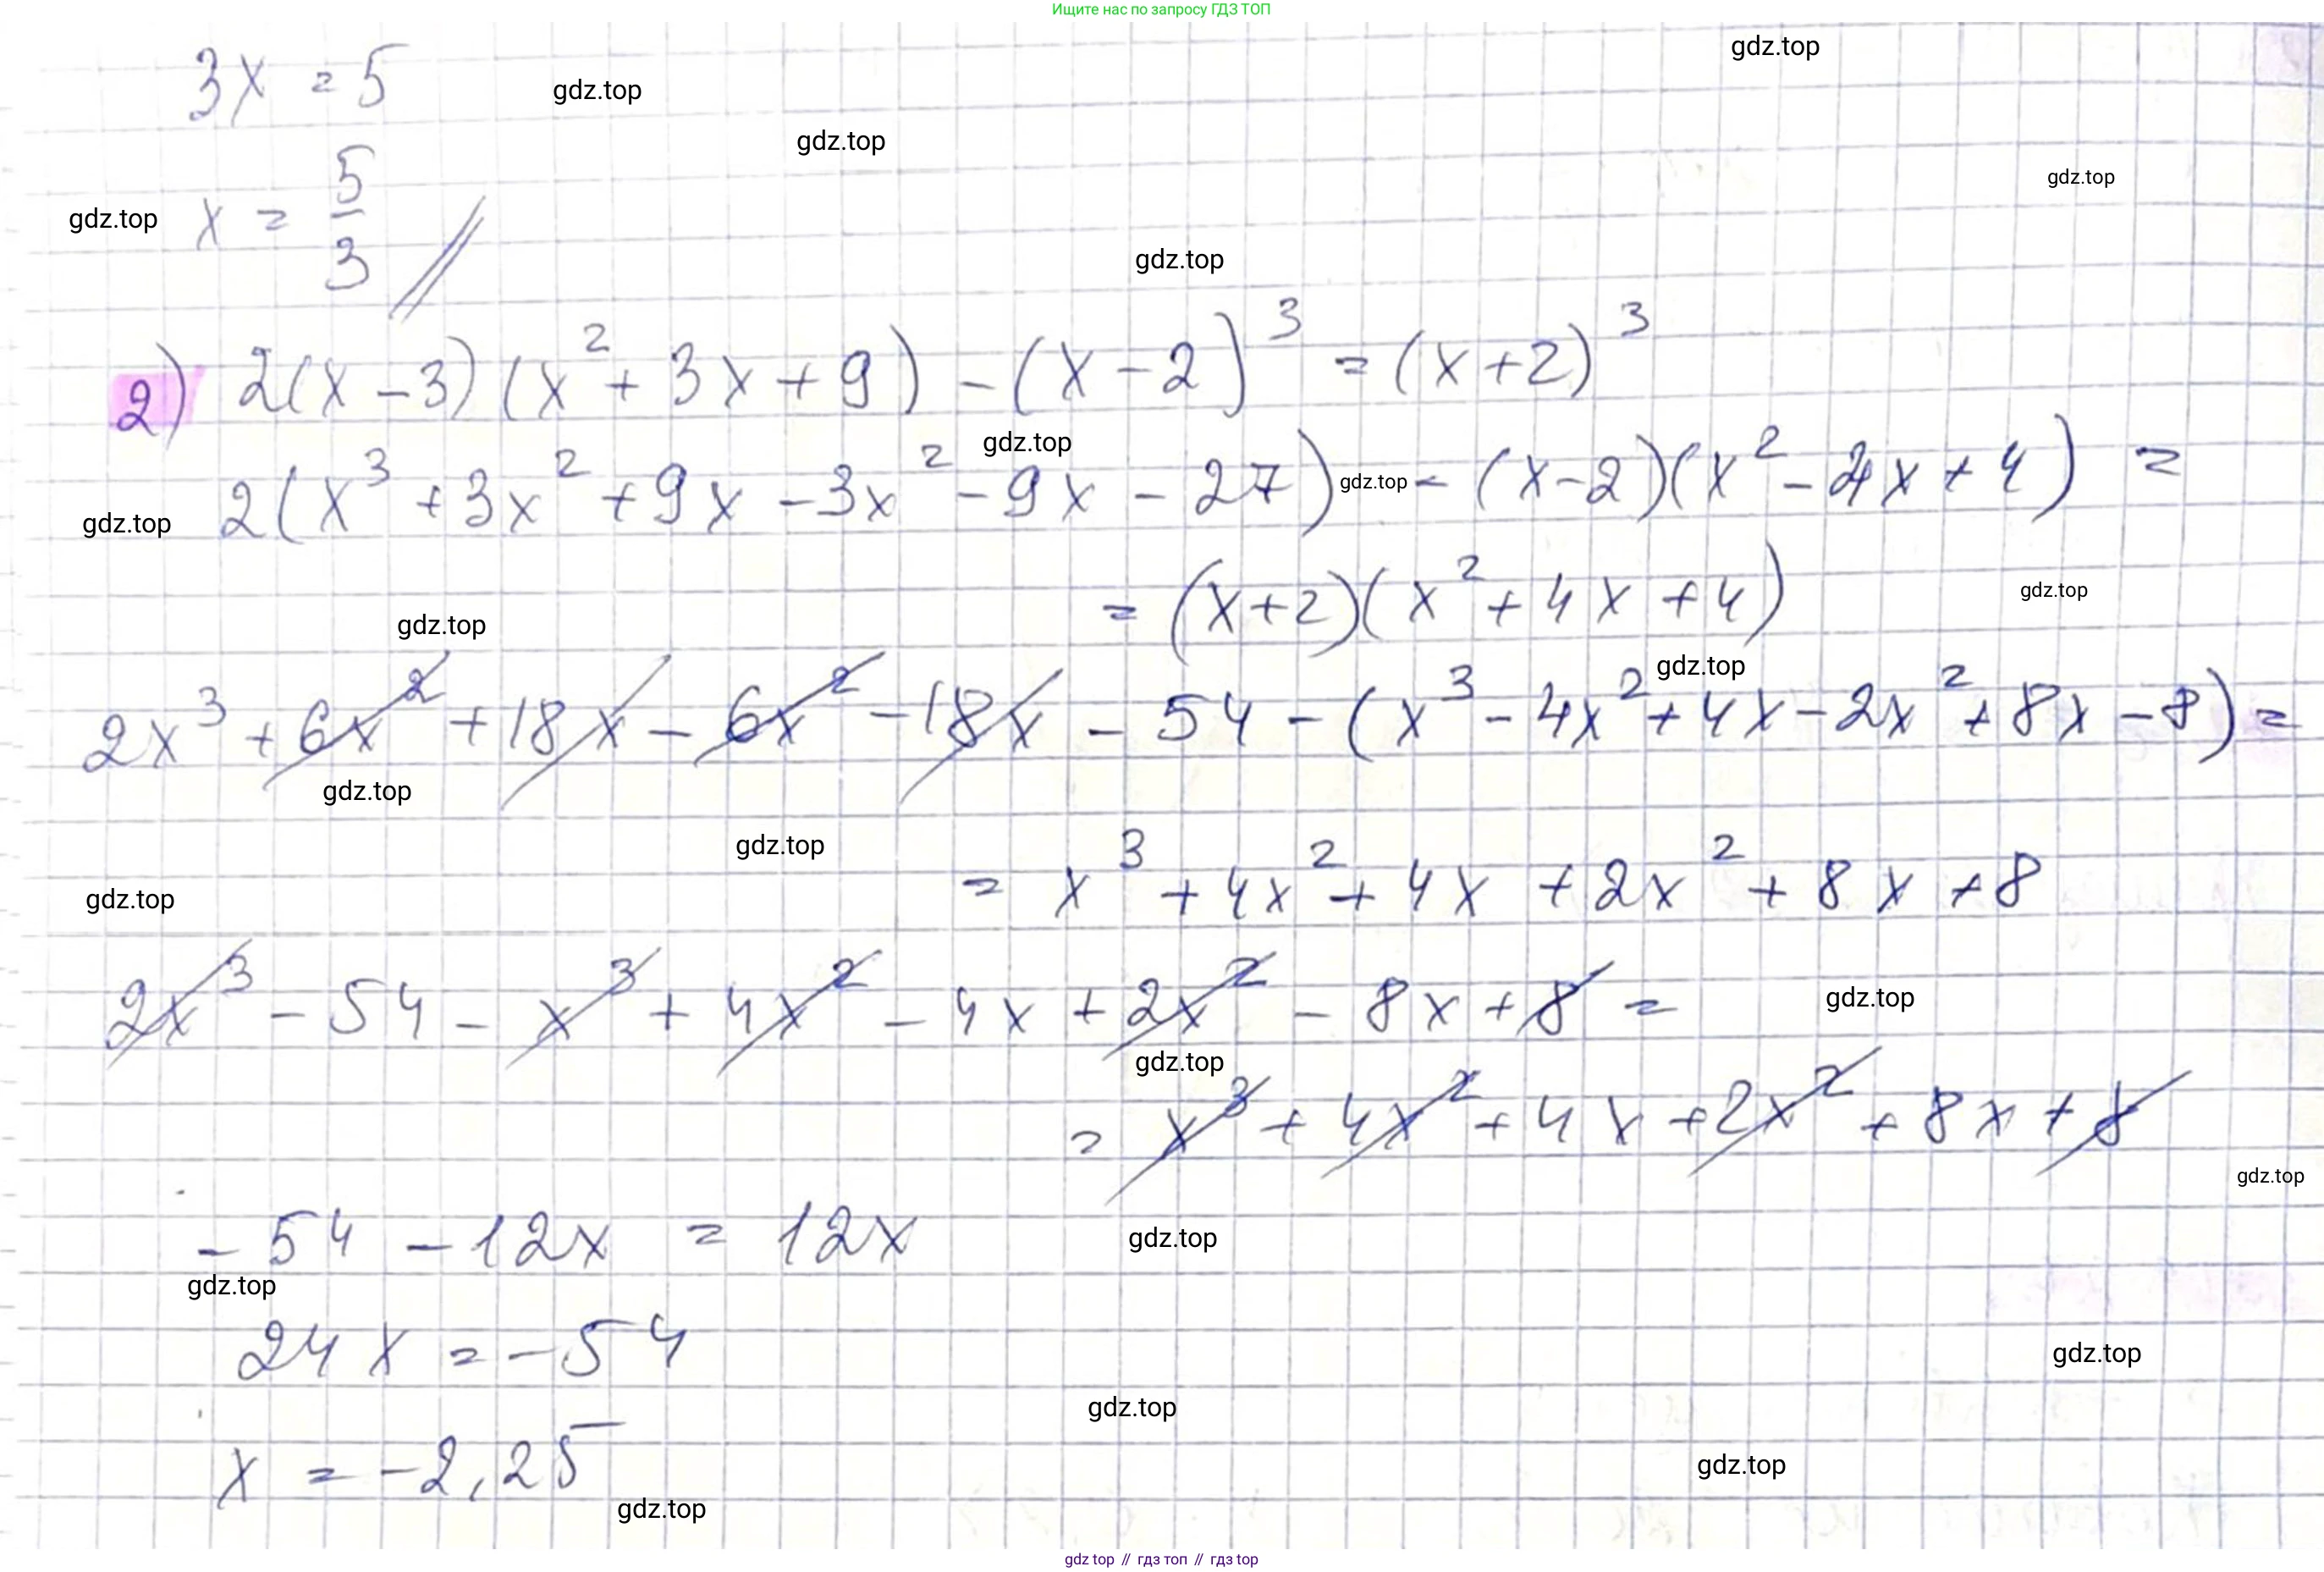 Ищите нас по запросу ГДЗ ТОП
gdz.top
3x = 5
gdz.top
gdz.top
gdz.top
gdz.top
x = 5/3 //
gdz.top
2) 2(x-3)(x²+3x+9) - (x-2)³ = (x+2)³
gdz.top
2(x³+3x²+9x-3x²-9x-27) - (x-2)(x²-4x+4) =
gdz.top
gdz.top
= (x+2)(x²+4x+4)
gdz.top
gdz.top
gdz.top
2x³+6x²+18x-6x²-18x-54-(x³-4x²+4x-2x²+8x-8)=
gdz.top
gdz.top
= x³+4x²+4x+2x²+8x+8
gdz.top
2x³-54-x³+4x²-4x+2x²-8x+8=
gdz.top
gdz.top
= x³+4x²+4x+2x²+8x+8
gdz.top
-54-12x = 12x
gdz.top
gdz.top
24x = -54
gdz.top
gdz.top
x = -2,25
gdz.top
gdz.top
gdz top // гдз топ // гдз top